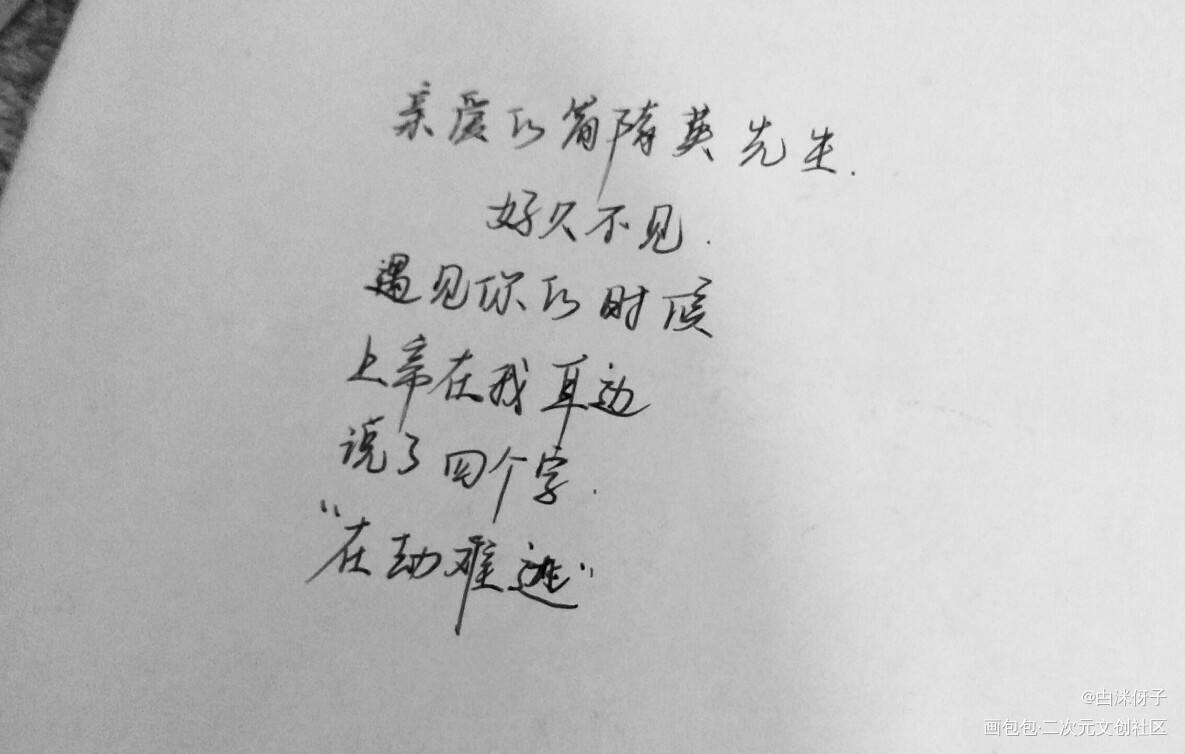 亲爱的简隋英先生.
好久不见.
遇见你的时候
上帝在我耳边
说了四个字.
“在劫难逃”
@由洣伢子
画包包·二次元文创社区